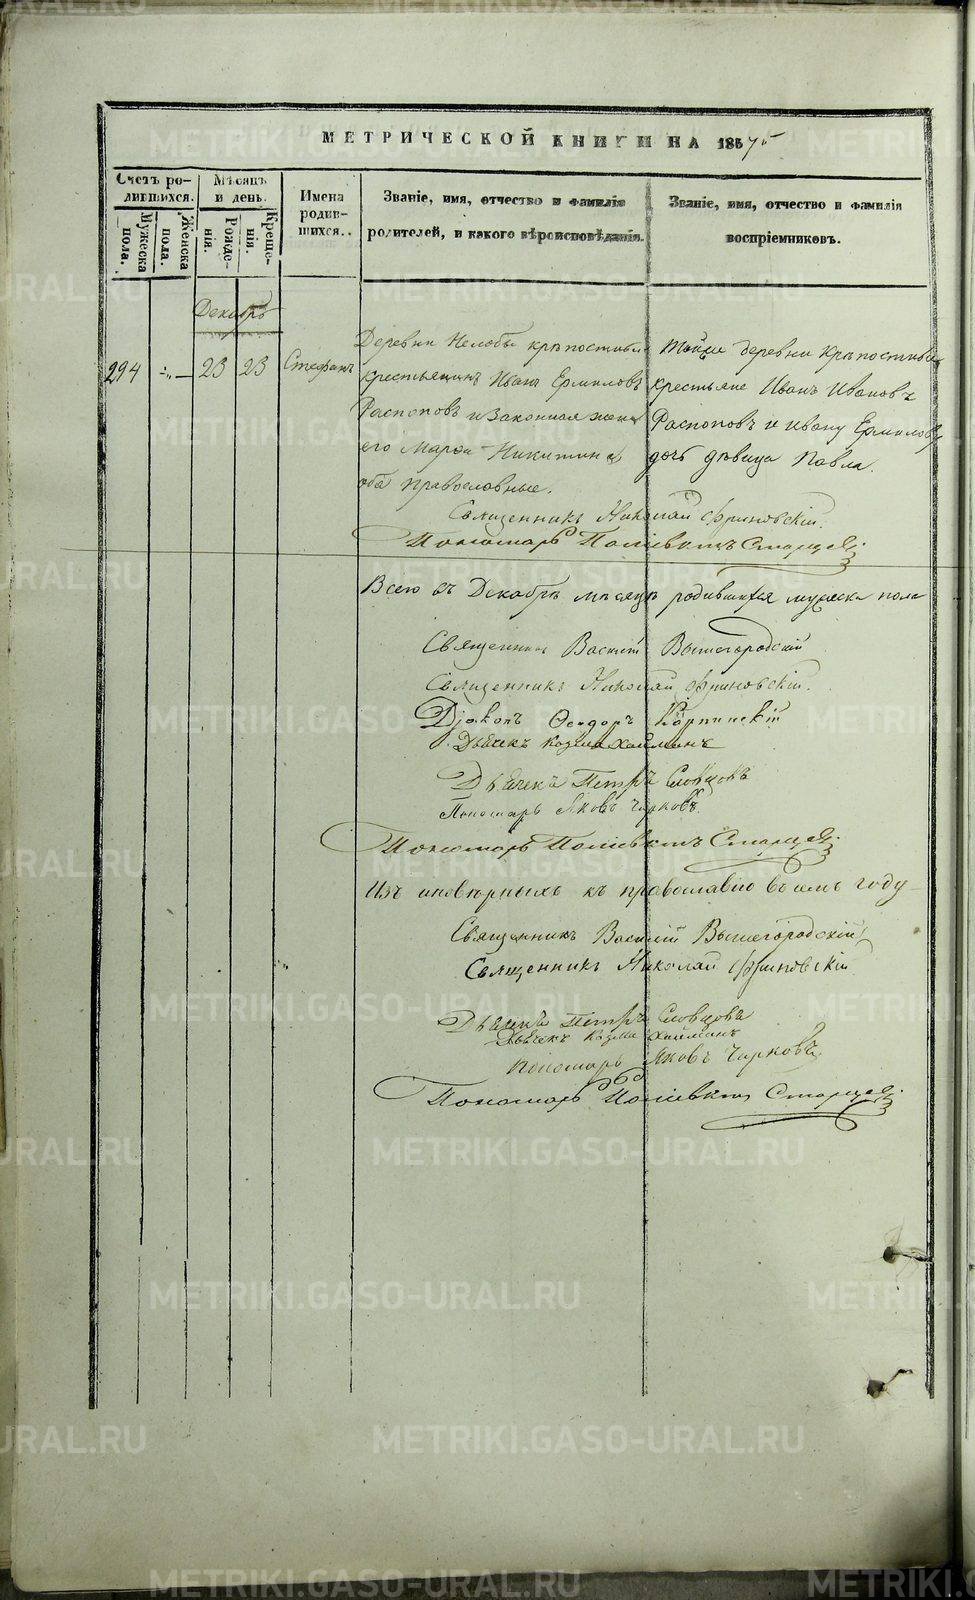 МЕТРИЧЕСКОЙ КНИГИ НА 185
Счетъ ро-
дившихся.
Мужеска
пола.
Женска
пола.
Мѣсяцъ
и день.
Рожде-
нія.
Креще-
нія.
Имена
родив-
шихся.
Званіе, имя, отчество и фамилія
родителей, и какого вѣроисповѣданія.
Званіе, имя, отчество и фамилія
воспріемниковъ.
Декабрь
294
23
23
Стефанъ
Деревни крѣпостный
крестьянинъ Ивана Ермиловъ
Распоповъ и законная жена
его Никитина
оба православные.
Тойже деревни крѣпостные
крестьяне Иванъ Ивановъ
Распоповъ и Ивану Ермилову
дочь дѣвица Павла.
Священникъ Николай Фриновскій.
Пономарь Поліевктъ Старцевъ
Всего въ Декабрѣ мѣсяцѣ родившихся мужеска пола
Священникъ Василій Вышегородскій
Священникъ Николай Фриновскій.
Діаконъ Ѳеодоръ Карпинскій
Дьячекъ Козма
Дьячекъ Петръ Словцовъ
Пономарь Яковъ Чирковъ
Пономарь Поліевктъ Старцевъ
Изъ иновѣрныхъ къ православію въ семъ году
Священникъ Василій Вышегородскій
Священникъ Николай Фриновскій
Дьячекъ Петръ Словцовъ
Дьячекъ Козма
Пономарь Яковъ Чирковъ
Пономарь Поліевктъ Старцевъ
METRIKI.GASO-URAL.RU